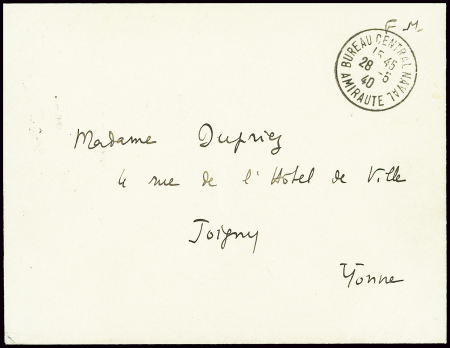 F. M.
BUREAU CENTRAL NAVAL
15 45
28 -5
40
AMIRAUTE
Madame Dupriez
4 rue de l'Hôtel de Ville
Joigny
Yonne